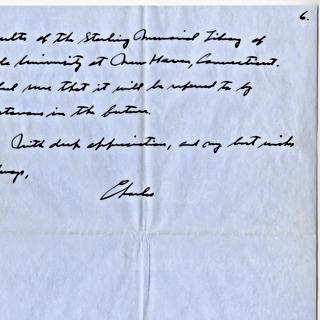 6.
vaults of the Sterling Memorial Library of
Yale University at New Haven, Connecticut.
feel sure that it will be referred to by
in the future.
With deep appreciation, and my best wishes
always,
Charles